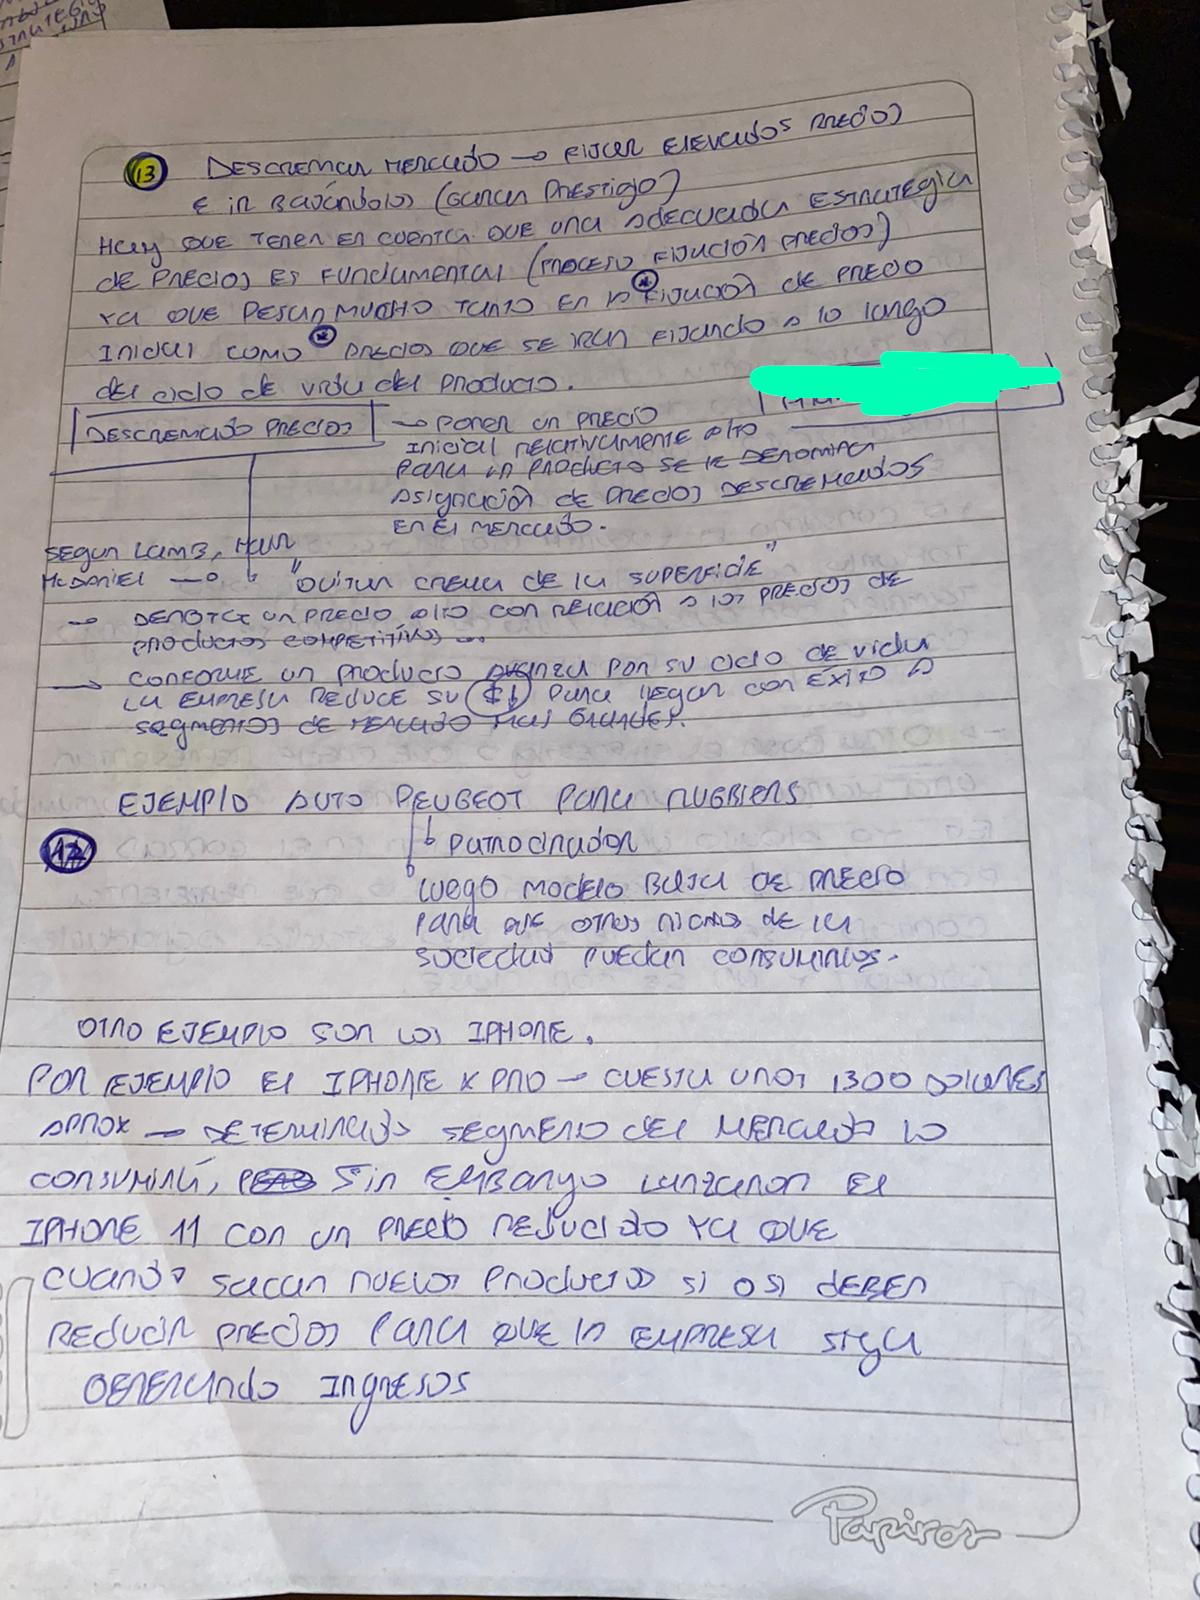 13 DESCREMAR MERCADO → FIJAR ELEVADOS PRECIOS
E IR BAJÁNDOLOS (GANAR PRESTIGIO)
HAY QUE TENER EN CUENTA QUE UNA ADECUADA ESTRATEGIA
DE PRECIOS ES FUNDAMENTAL (PROCESO FIJACIÓN PRECIOS)
YA QUE PESAN MUCHO TANTO EN LA FIJACIÓN DE PRECIO
INICIAL COMO PRECIOS QUE SE IRAN FIJANDO A LO LARGO
DEL CICLO DE VIDA DEL PRODUCTO.
DESCREMADO PRECIOS → PONER UN PRECIO
INICIAL RELATIVAMENTE ALTO
PARA UN PRODUCTO SE LE DENOMINA
ASIGNACIÓN DE PRECIOS DESCREMADOS
EN EL MERCADO.
SEGUN LAMB, HAIR
McDANIEL → "QUITAR CREMA DE LA SUPERFICIE"
→ DENOTA UN PRECIO ALTO CON RELACIÓN A LOS PRECIOS DE
PRODUCTOS COMPETITIVOS
→ CONFORME UN PRODUCTO AVANZA POR SU CICLO DE VIDA
LA EMPRESA REDUCE SU $↓ PARA LLEGAR CON ÉXITO A
SEGMENTOS DE MERCADO MAS GRANDES.
EJEMPLO AUTO PEUGEOT PARA RUGBIERS
12
PATROCINADOR
LUEGO MODELO BAJA DE PRECIO
PARA QUE OTROS NICHOS DE LA
SOCIEDAD PUEDAN CONSUMIRLOS.
OTRO EJEMPLO SON LOS IPHONE.
POR EJEMPLO EL IPHONE X PRO → CUESTA UNOS 1300 DOLARES
APROX → DETERMINADO SEGMENTO DEL MERCADO LO
CONSUMIRÁ, SIN EMBARGO LANZARON EL
IPHONE 11 CON UN PRECIO REDUCIDO YA QUE
CUANDO SACAN NUEVOS PRODUCTOS SI O SI DEBEN
REDUCIR PRECIOS PARA QUE LA EMPRESA SIGA
GENERANDO INGRESOS
Papiros